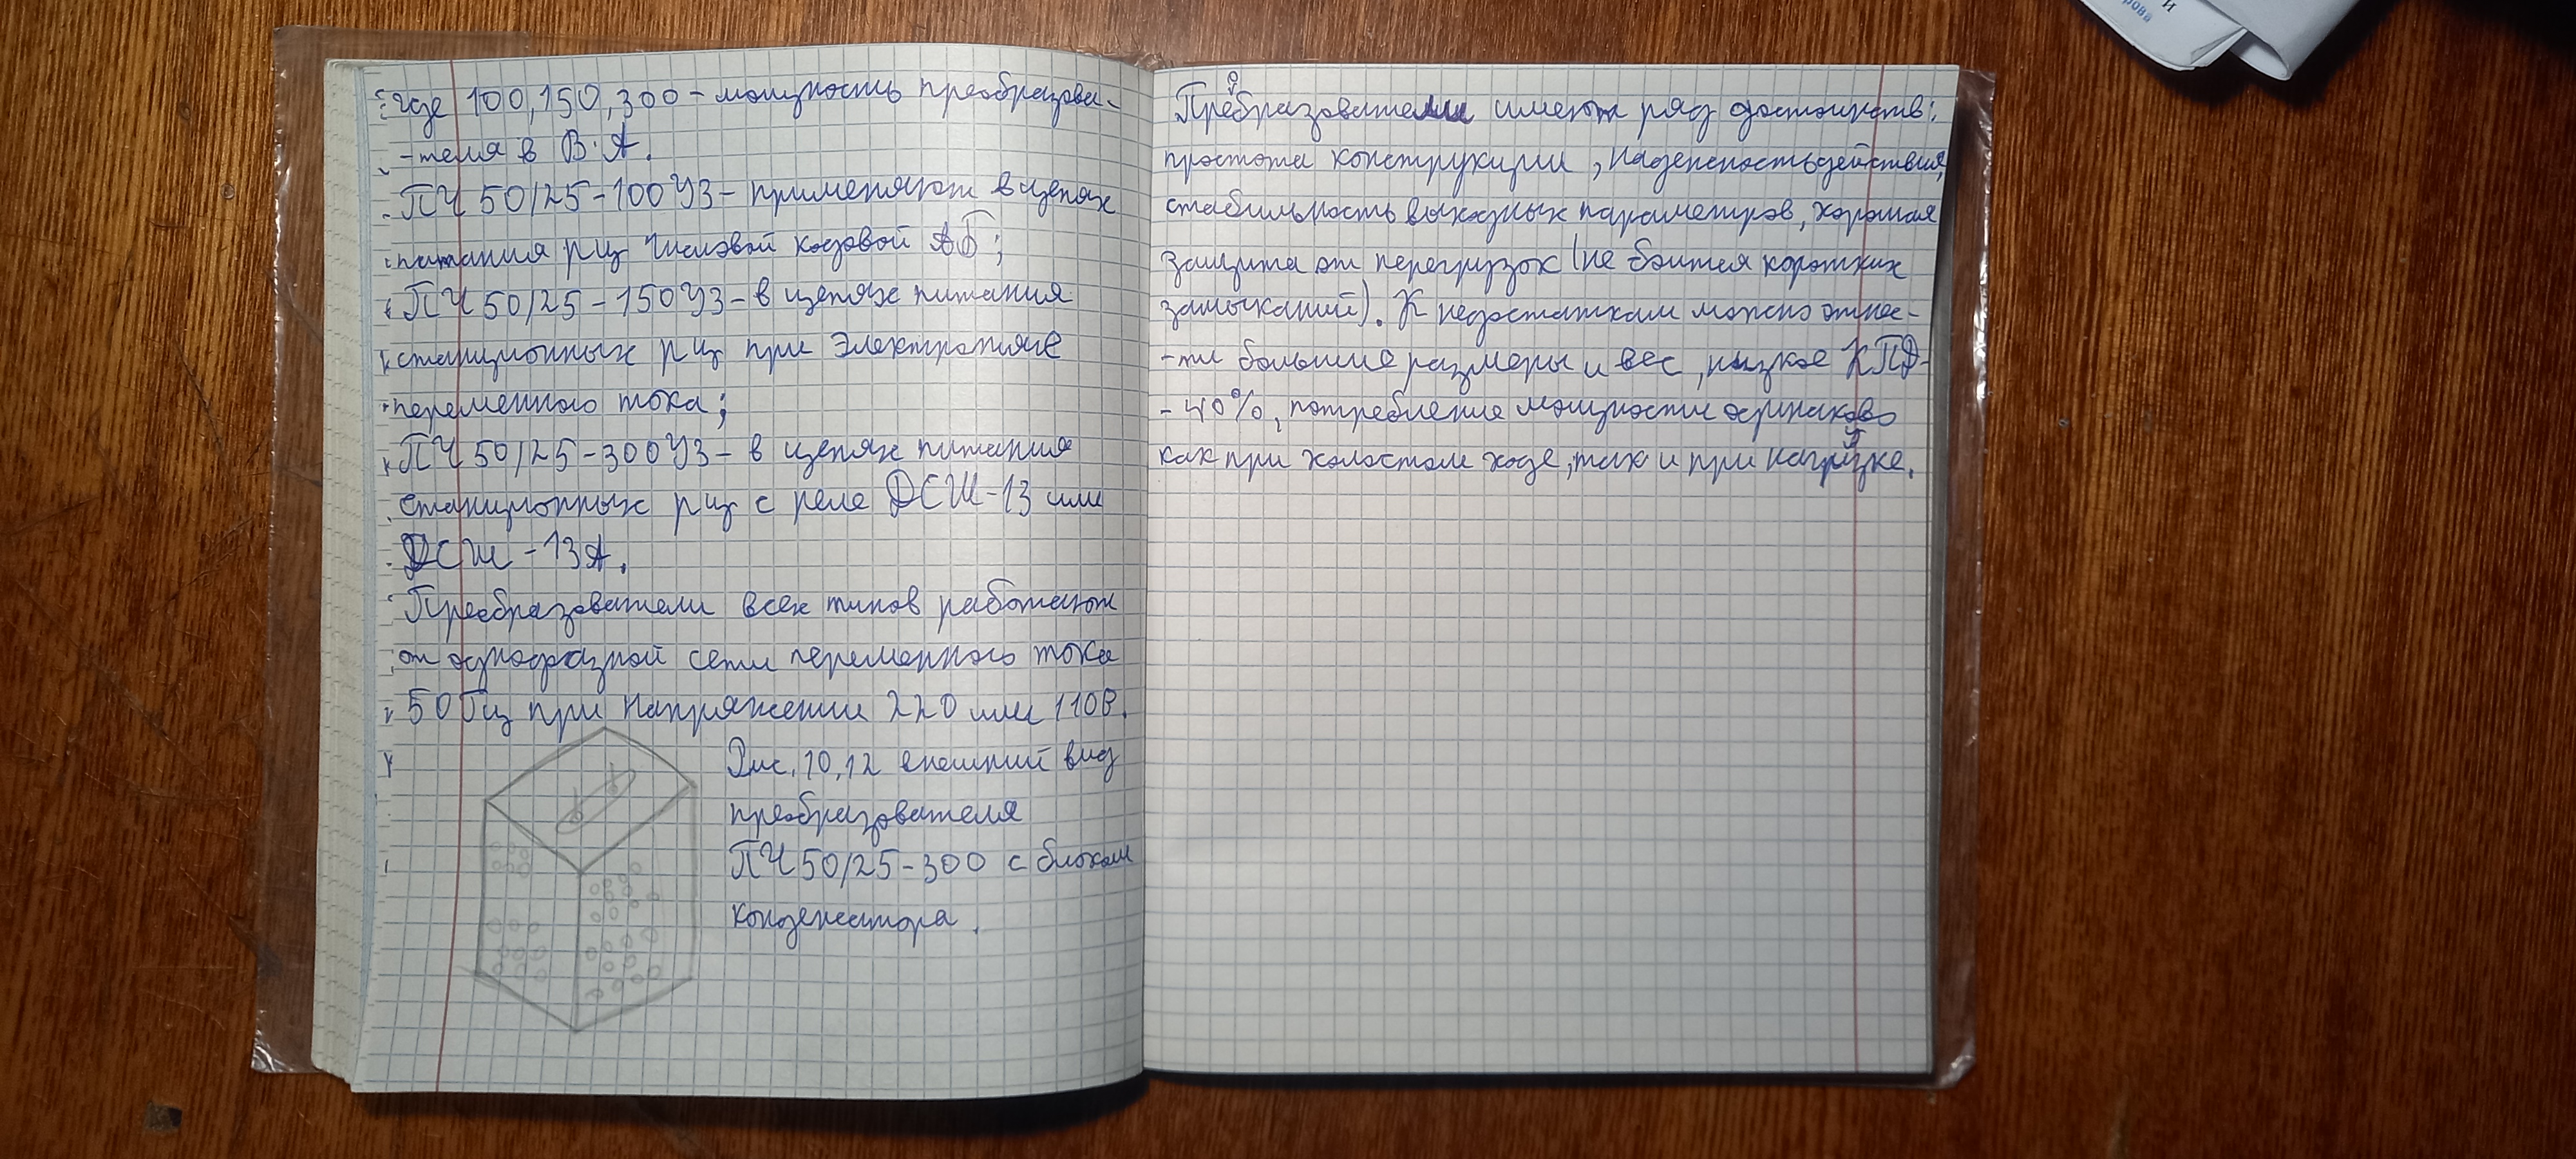 где 100, 150, 300 - мощность преобразова-
-теля в В·А.
ПЧ 50/25-100У3 - применяют в цепях
питания рц числовой кодовой АБ;
ПЧ 50/25-150У3 - в цепях питания
станционных рц при электротяге
переменного тока;
ПЧ 50/25-300У3 - в цепях питания
станционных рц с реле ДСШ-13 или
ДСШ-13А.
Преобразователи всех типов работают
от однофазной сети переменного тока
50 Гц при напряжении 220 или 110В.
Рис. 10,12 внешний вид
преобразователя
ПЧ 50/25-300 с блоком
конденсатора.
Преобразователи имеют ряд достоинств:
простота конструкции, надежность действия,
стабильность выходных параметров, хорошая
защита от перегрузок (не боится коротких
замыканий). К недостаткам можно отнес-
-ти большие размеры и вес, низкое КПД-
- 40%, потребление мощности одинаково
как при холостом ходе, так и при нагрузке.
рова
и